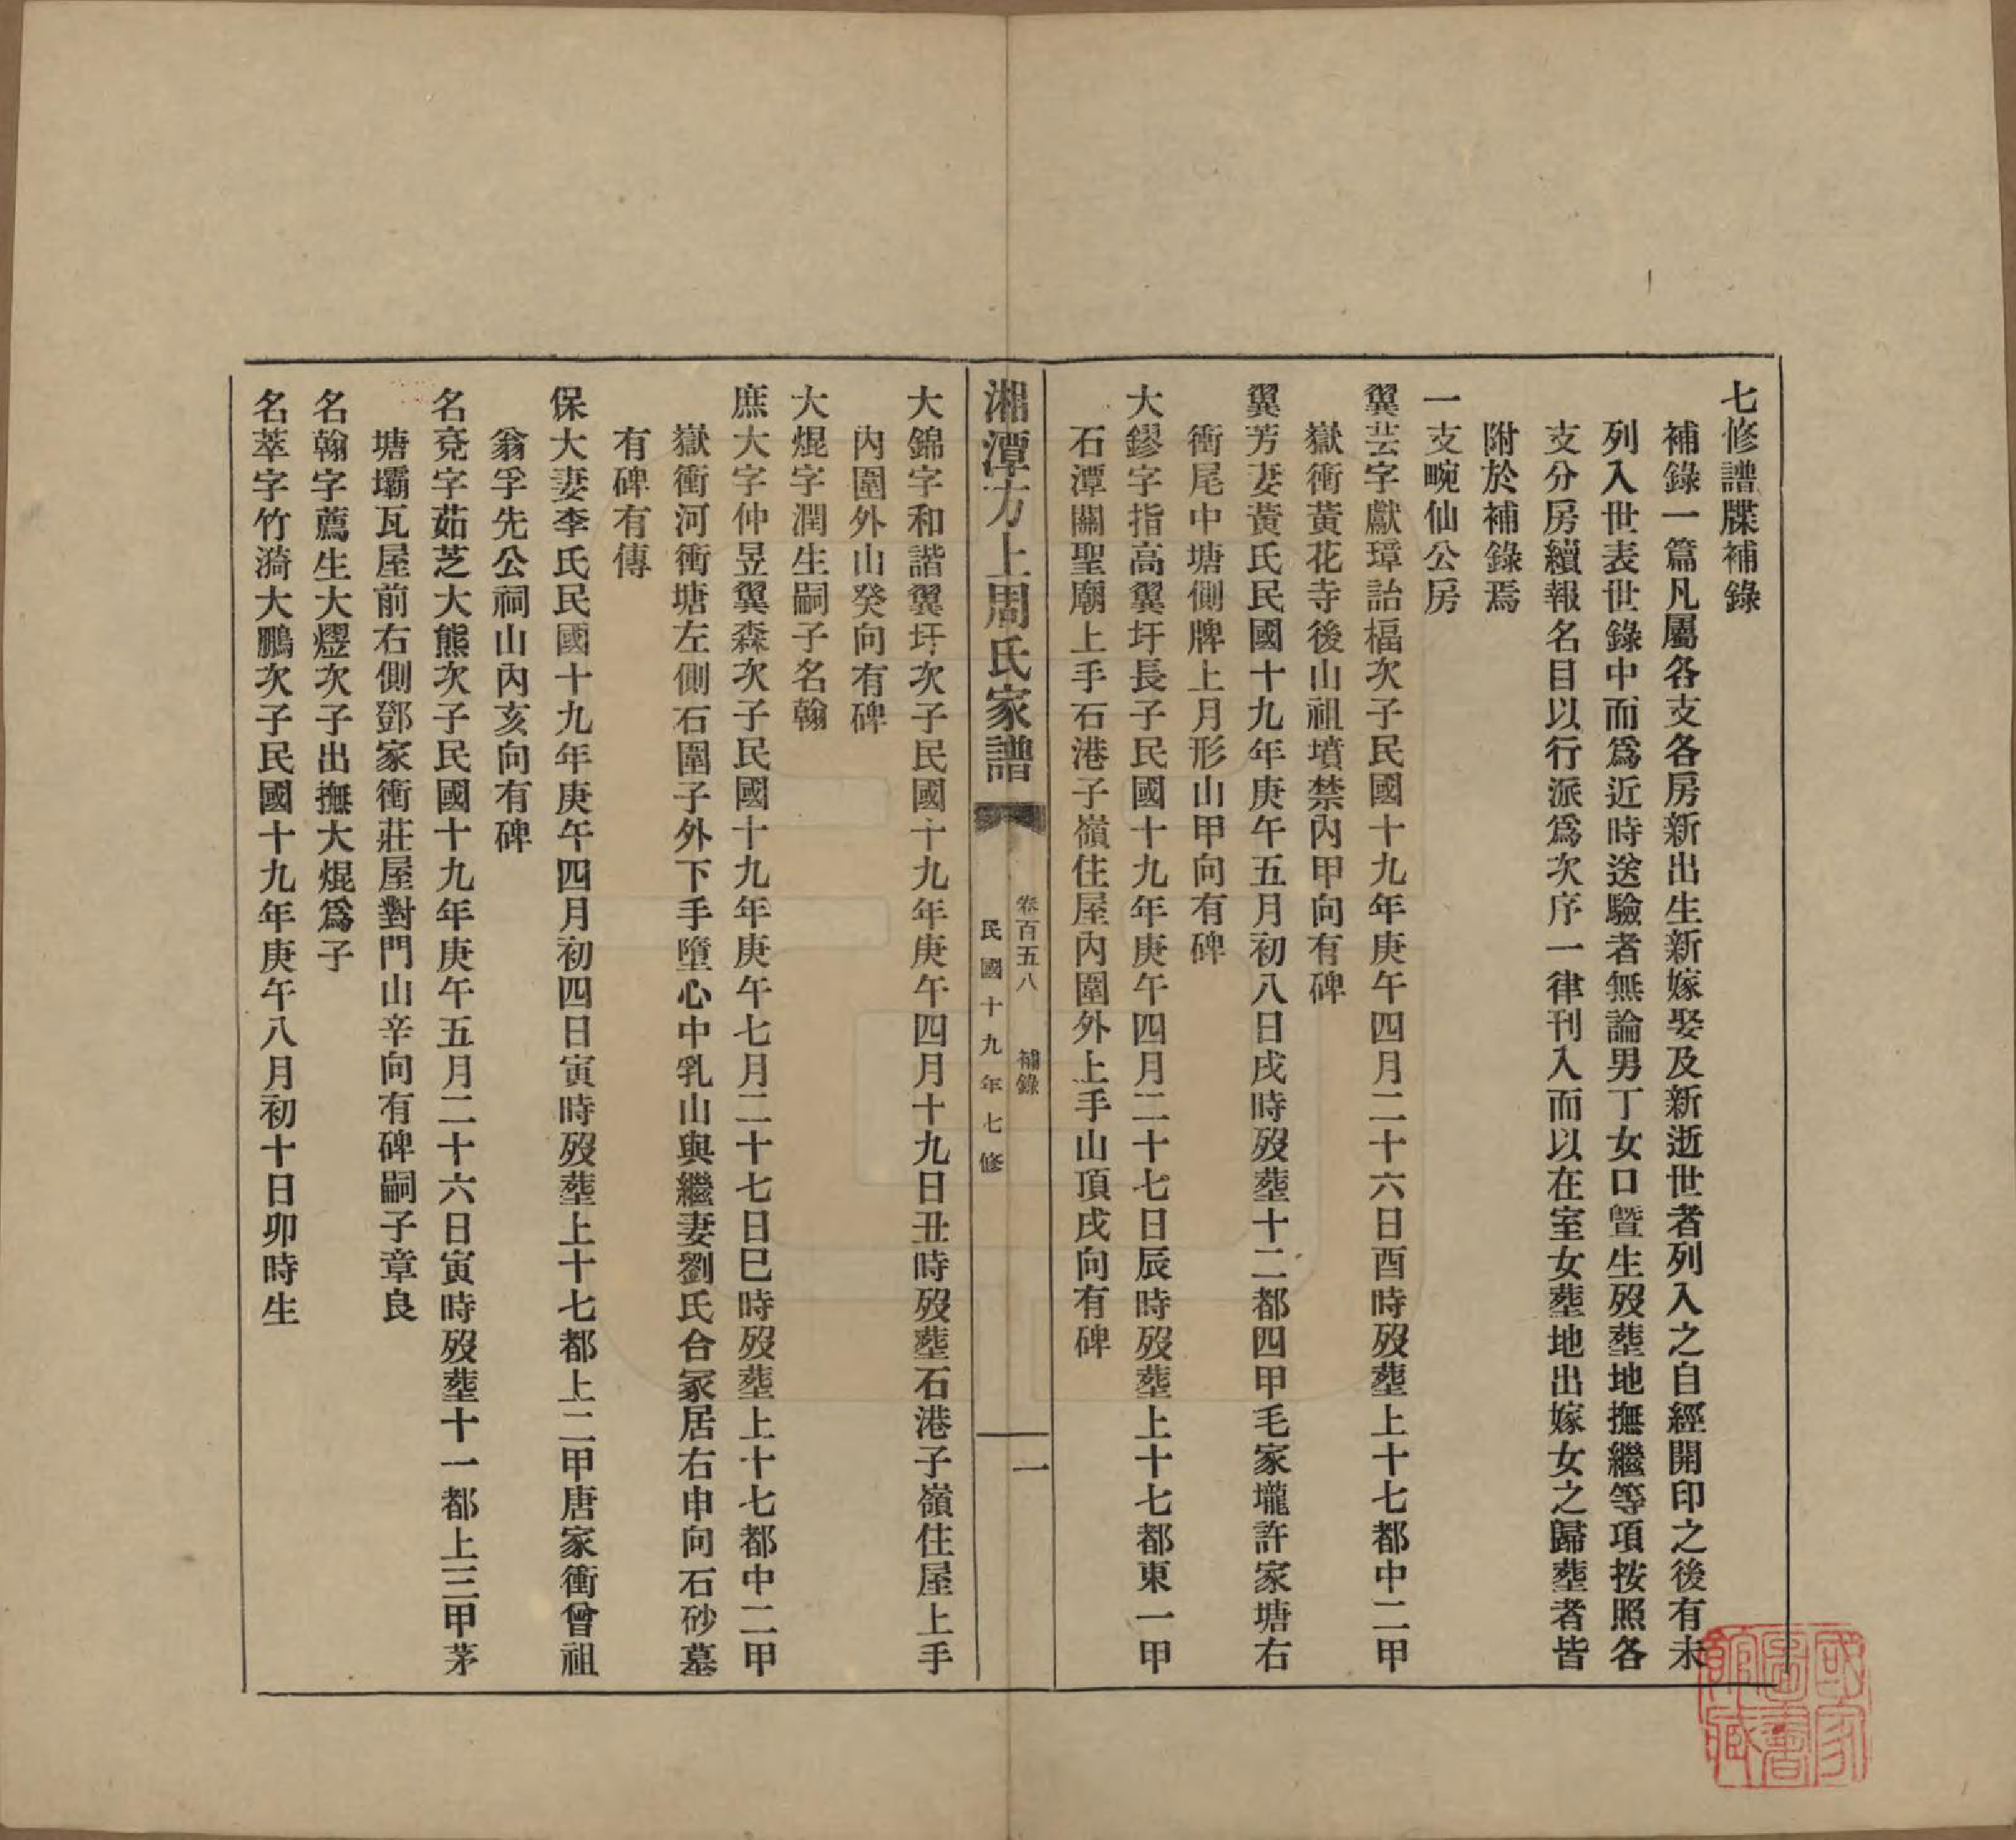 七修譜牒補錄
補錄一篇凡屬各支各房新出生新嫁娶及新逝世者列入之自經開印之後有未
列入世表世錄中而爲近時送驗者無論男丁女口曁生歿塟地撫繼等項按照各
支分房續報名目以行派爲次序一律刊入而以在室女塟地出嫁女之歸塟者皆
附於補錄焉
一支畹仙公房
翼芸字獻璋詒楅次子民國十九年庚午四月二十六日酉時歿塟上十七都中二甲
嶽衝黃花寺後山祖墳禁內甲向有碑
翼芳妻黃氏民國十九年庚午五月初八日戌時歿塟十二都四甲毛家壠許家塘右
衝尾中塘側牌上月形山甲向有碑
大鏐字指高翼圩長子民國十九年庚午四月二十七日辰時歿塟上十七都東一甲
石潭關聖廟上手石港子嶺住屋內圍外上手山頂戌向有碑
湘潭方上周氏家譜
卷百五八 補錄
一
民國十九年七修
大錦字和諧翼圩次子民國十九年庚午四月十九日丑時歿塟石港子嶺住屋上手
內圍外山癸向有碑
大焜字潤生嗣子名翰
庶大字仲昱翼森次子民國十九年庚午七月二十七日巳時歿塟上十七都中二甲
嶽衝河衝塘左側石圍子外下手墮心中乳山與繼妻劉氏合冢居右申向石砂墓
有碑有傳
保大妻李氏民國十九年庚午四月初四日寅時歿塟上十七都上二甲唐家衝曾祖
翁孚先公祠山內亥向有碑
名堯字茹芝大熊次子民國十九年庚午五月二十六日寅時歿塟十一都上三甲茅
塘壩瓦屋前右側鄧家衝莊屋對門山辛向有碑嗣子章良
名翰字薦生大熤次子出撫大焜爲子
名萃字竹漪大鵬次子民國十九年庚午八月初十日卯時生
國家圖書館藏